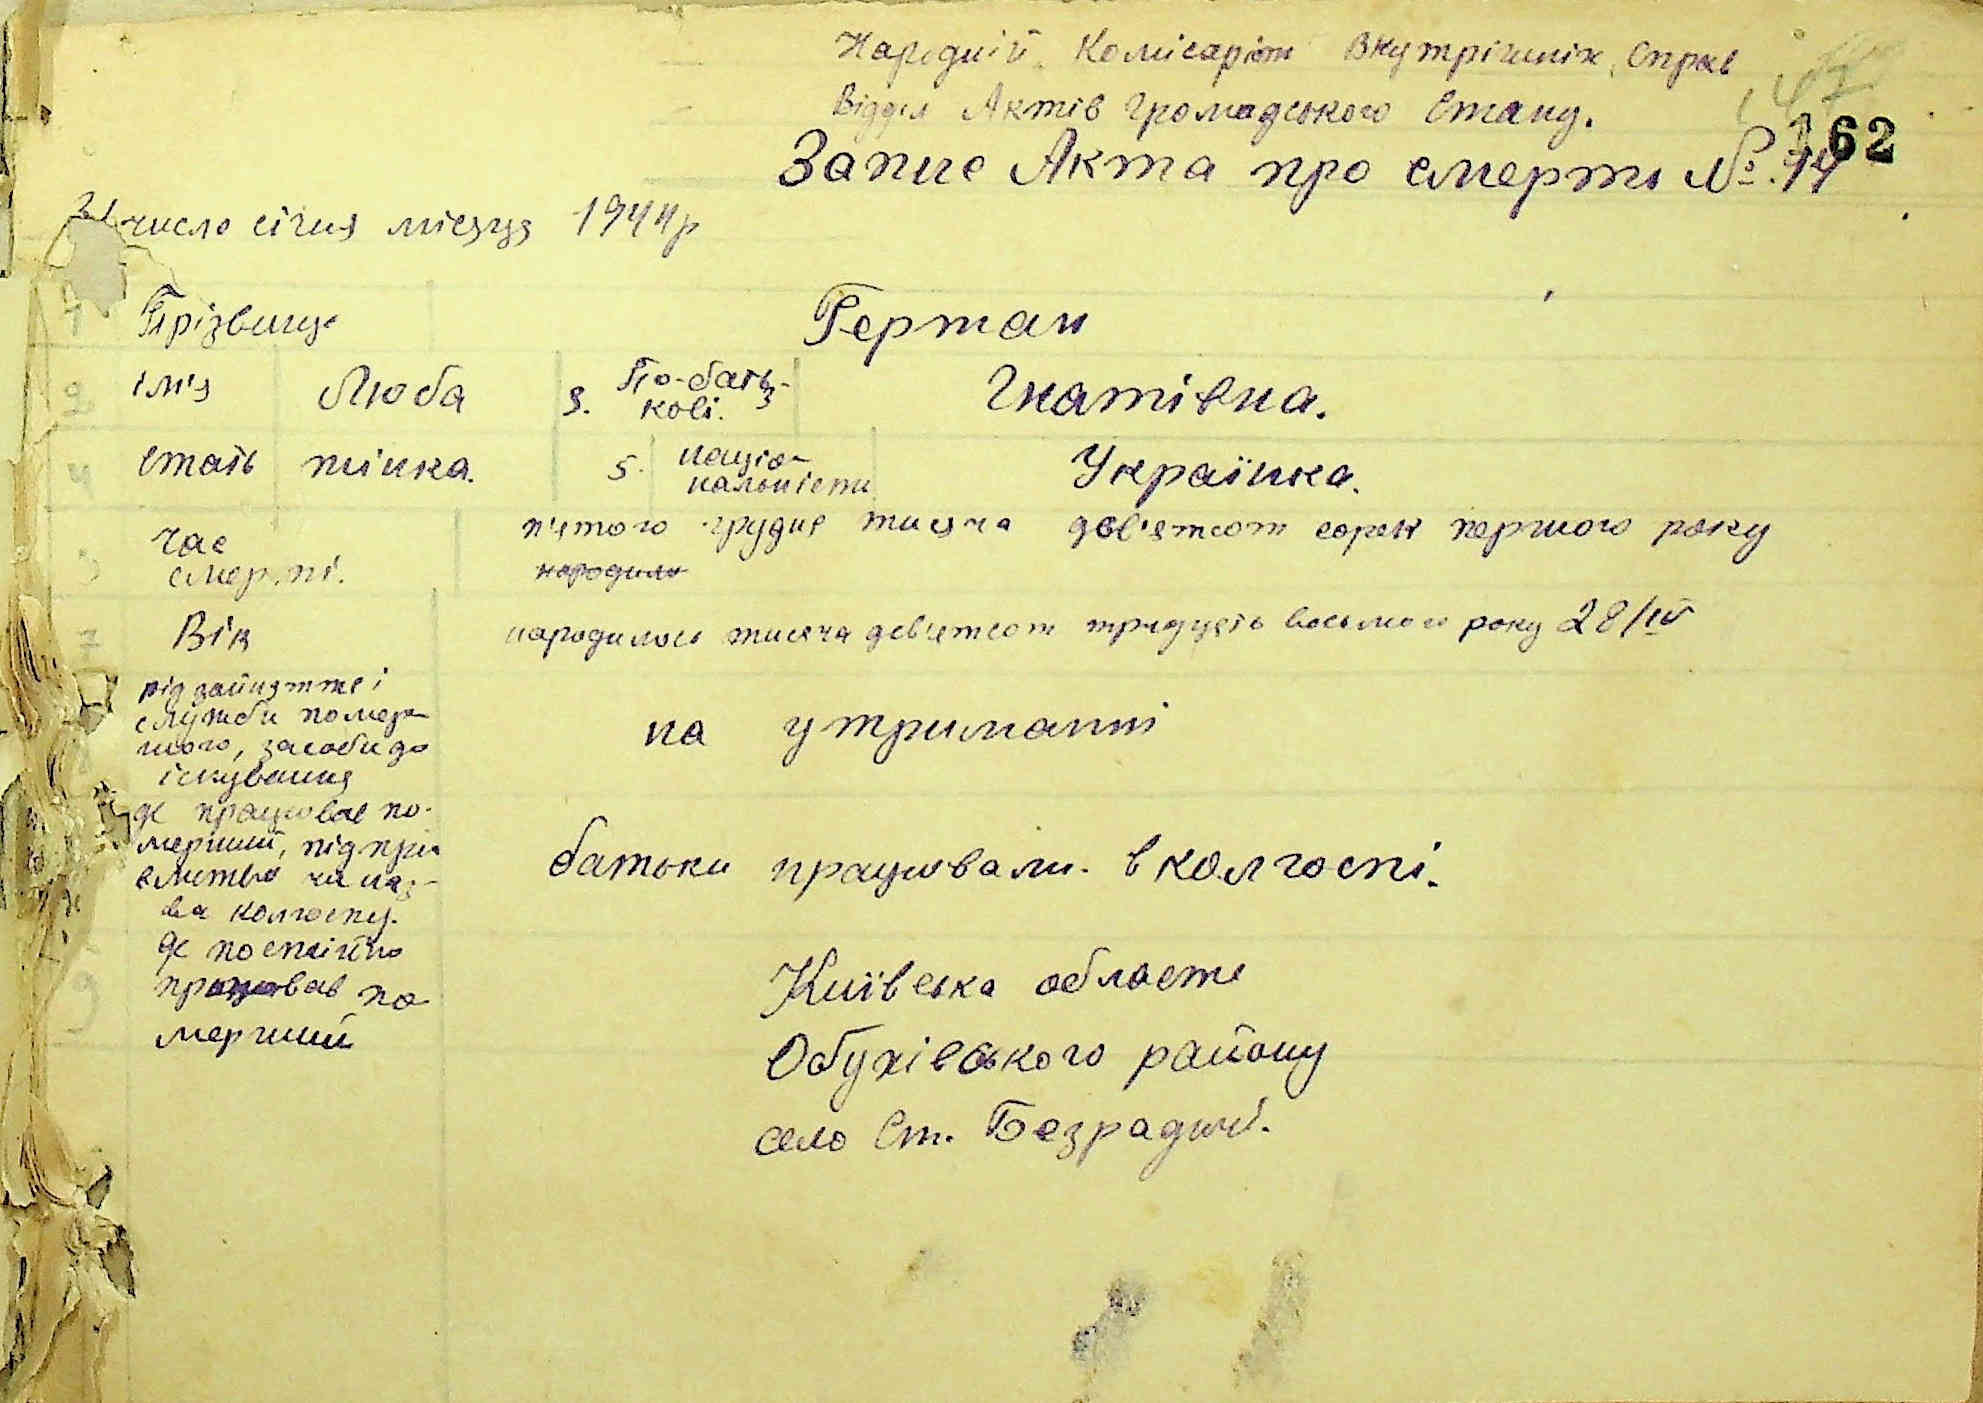 Народній Комісаріат Внутрішніх Справ
Відділ Актів Громадського Стану.
Запис Акта про смерть № 14
162
21 число січня місяця 1944р
1 Прізвище Гертан
2 ім'я Люба 3. По-батькові. Гнатівна.
4 стать жінка. 5. націо-
нальність Українка.
час п'ятого грудня тисяча дев'ятсот сорок першого року
смерті. народило
7 Вік народилась тисяча дев'ятсот тридцять восьмого року 28/IV
рід зайняття і
служби помер-
шого, засоби до
існування
на утриманні
де працював по-
мерший, підпри-
ємство чи наз-
ва колгоспу.
батьки працювали в колгоспі.
де постійно
працював по
мерший
Київська область
Обухівського району
село Ст. Безрадичі.